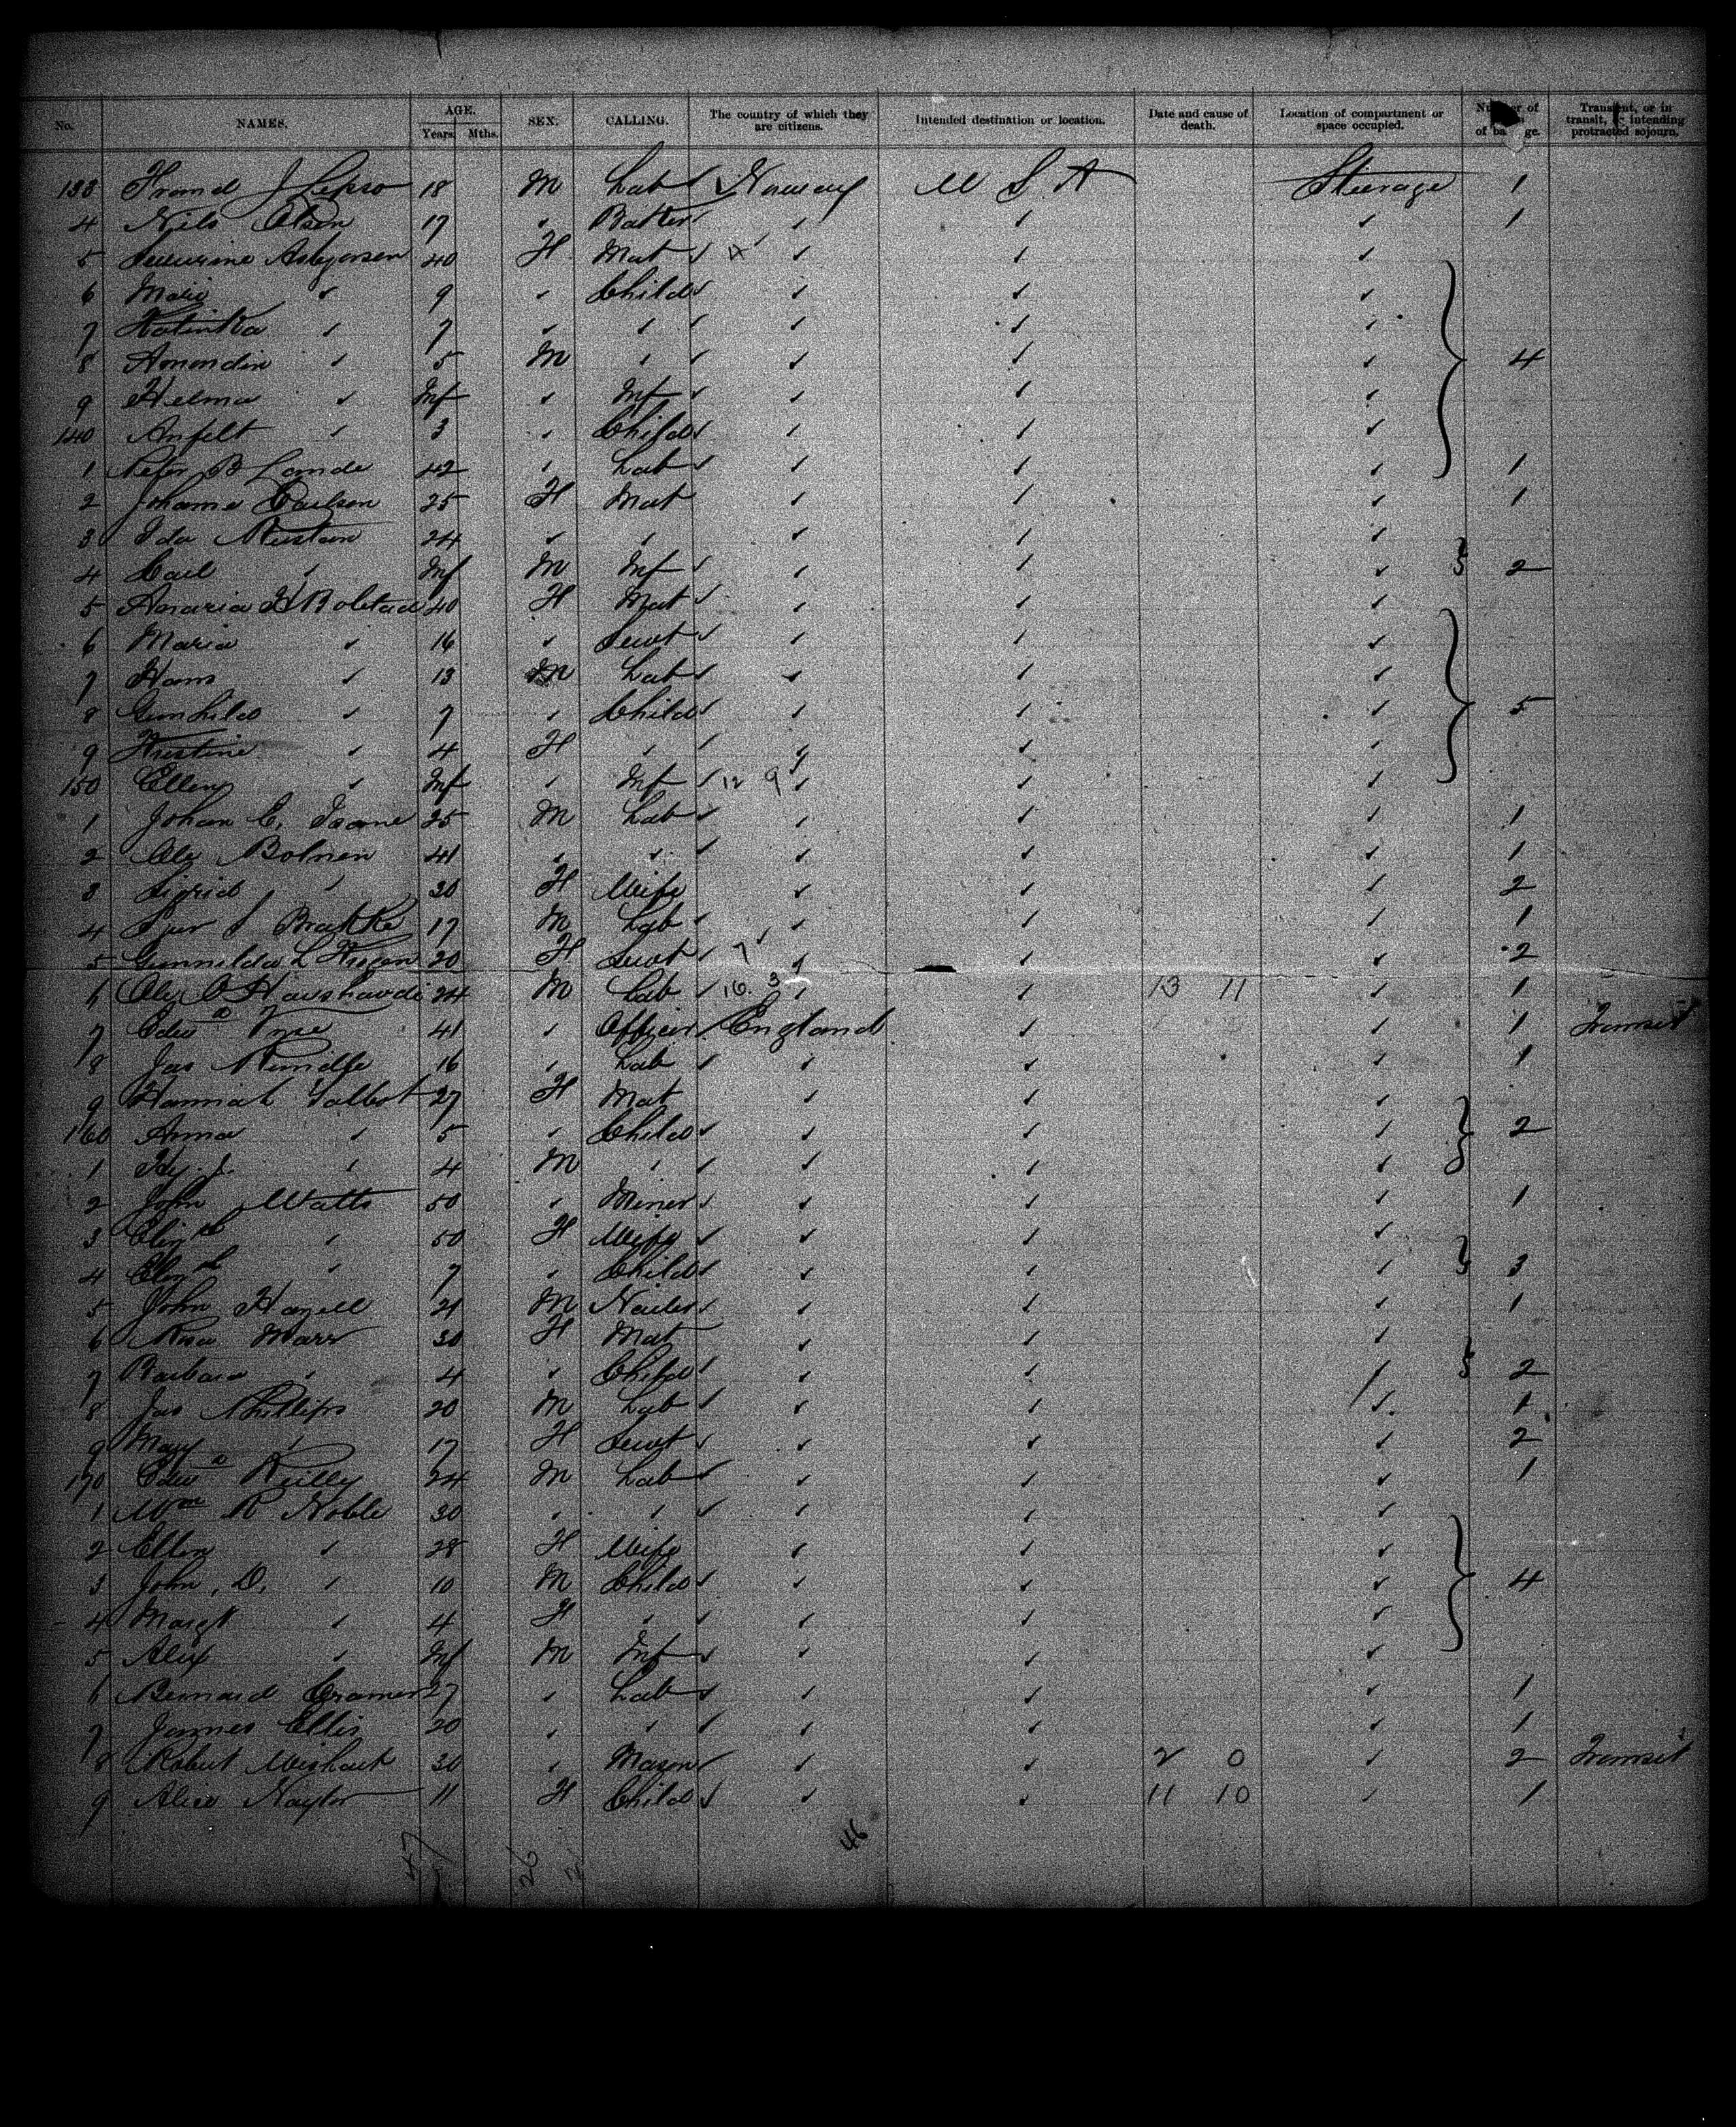 No. NAMES. AGE. Years. Mths. SEX. CALLING. The country of which they are citizens. Intended destination or location. Date and cause of death. Location of compartment or space occupied. Number of of ba ge. Transient, or in transit, or intending protracted sojourn.
133 18 M Lab ✓ Norway U S A Steerage 1
4 Nils Olsen 17 " ✓ " " " 1
5 40 F Mat ✓ " " "
6 Marie " 9 " Child ✓ " " "
7 Katinka " 7 " " ✓ " " "
8 " 5 M " ✓ " " " 4
9 Helma " Inf " Inf ✓ " " "
140 Anfelt " 3 " Child ✓ " " "
1 Peter B 42 " Lab ✓ " " " 1
2 Johanne 25 F Mat " " " 1
3 Ida 24 " " " " "
4 Carl " Inf M Inf ✓ " " " 2
5 40 F Mat ✓ " " "
6 Maria " 16 " Servt ✓ " " "
7 Hans " 13 M Lab ✓ " " "
8 Gunhild " 7 " Child ✓ " " " 5
9 Kristine " 4 F " ✓ " " "
150 Ellen " Inf " Inf ✓ 12 9 " " "
1 Johan C. 25 M Lab ✓ " " " 1
2 Ole 41 " " ✓ " " " 1
3 Sigrid " 30 F Wife " " " 2
4 17 M Lab ✓ " " " 1
5 20 F Servt ✓ 7 " " " 2
6 Ole O 24 M Lab ✓ 16. 3 " " 13 11 " 1
7 Edwd 41 " Officer ✓ England " " 1 Transit
8 Jas 16 " Lab ✓ " " " 1
9 Hannah Talbot 27 F Mat " " "
160 Anna " 5 " Child ✓ " " " 2
1 Hy. J. " 4 M " ✓ " " "
2 John Watts 50 " Miner ✓ " " " 1
3 Elizth " 50 F Wife ✓ " " "
4 Elizth " 7 " Child ✓ " " " 3
5 John 21 M Nailer ✓ " " " 1
6 Rosa Marr 30 F Mat " " "
7 Barbara " 4 " Child ✓ " " " 2
8 Jas Phillips 20 M Lab ✓ " " " 1
9 Mary " 17 F Servt ✓ " " " 2
170 Edwd Reilly 24 M Lab ✓ " " " 1
1 Wm R Noble 30 " " ✓ " " "
2 Ellen " 28 F Wife " " "
3 John, D, " 10 M Child ✓ " " " 4
4 Margt " 4 F " ✓ " " "
5 Alex " Inf M Inf ✓ " " "
6 Bernard Cramer 27 " Lab ✓ " " " 1
7 James Ellis 20 " " ✓ " " " 1
8 Robert Wishart 30 " Mason ✓ " " 2 0 " 2 Transit
9 Alice Naylor 11 F Child ✓ " " 11 10 " 1
47 26 21 46